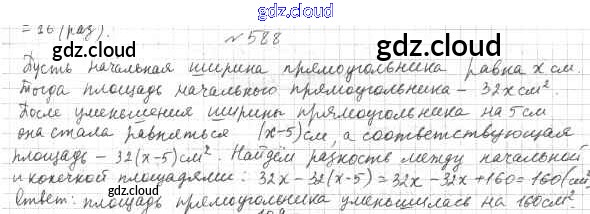 gdz.cloud
= 16 (раз).
№ 588
gdz.cloud gdz.cloud
Пусть начальная ширина прямоугольника равна x см.
Тогда площадь начального прямоугольника – 32x см².
После уменьшения ширины прямоугольника на 5 см
она стала равняться (x-5) см, а соответствующая
площадь – 32(x-5) см². Найдём разность между начальной
и конечной площадями: 32x - 32(x-5) = 32x - 32x + 160 = 160 (см²)
gdz.cloud gdz.cloud
Ответ: площадь прямоугольника уменьшилась на 160 см².